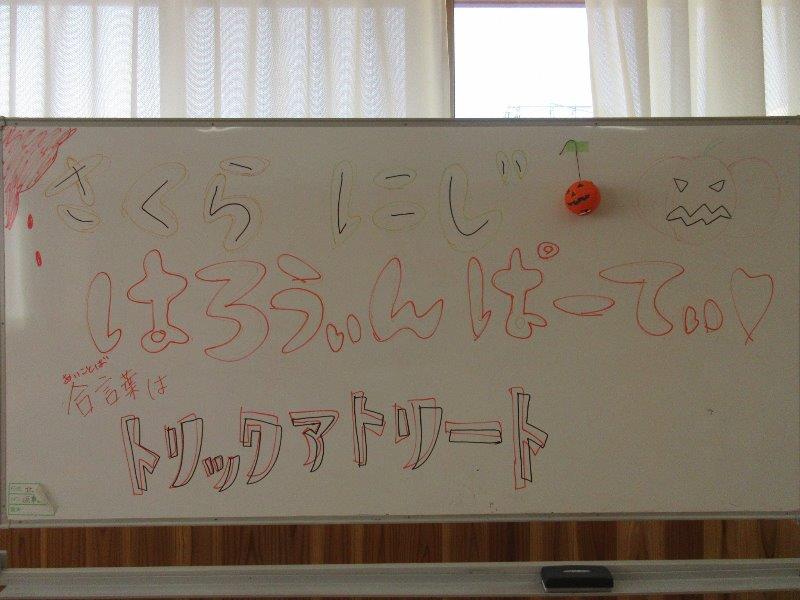 さくら にじ
はろうぃん ぱーてぃぃ♡
あいことば
合言葉は
トリックアトリート